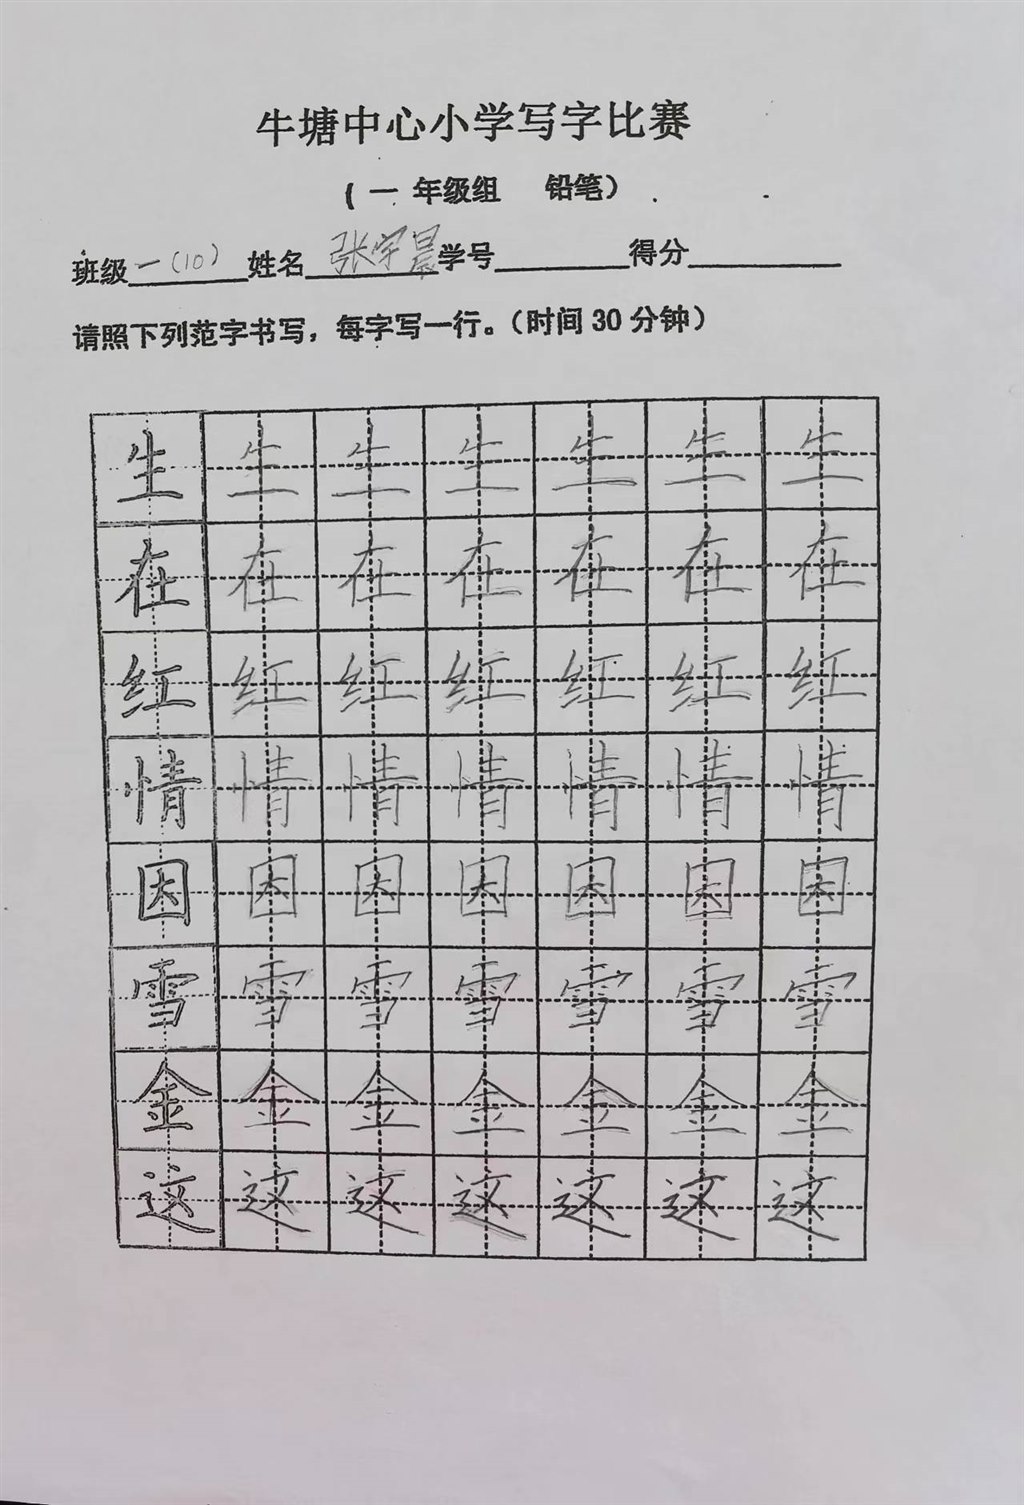 牛塘中心小学写字比赛
(一年级组 铅笔)
班级一(10) 姓名张宇晨学号 得分
请照下列范字书写，每字写一行。(时间30分钟)
生生生生生生生
在在在在在在在
红红红红红红红
情情情情情情情
因因因因因因因
雪雪雪雪雪雪雪
金金金金金金金
这这这这这这这